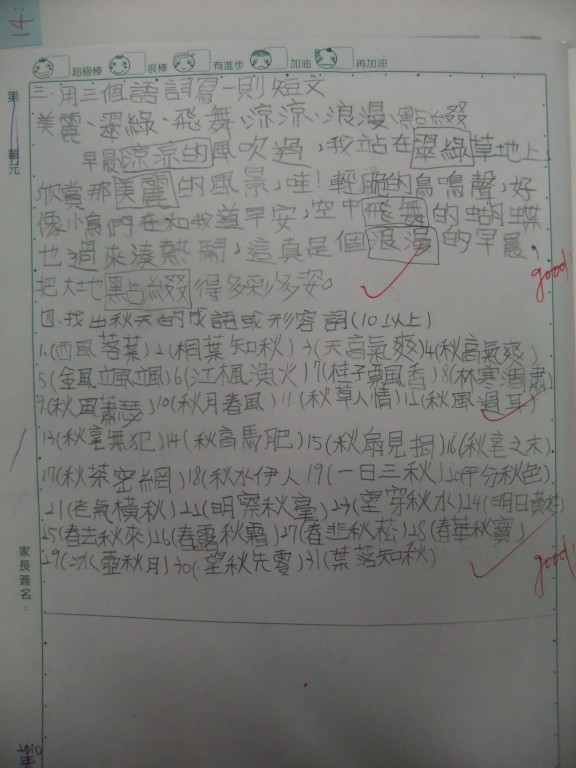 14
超級棒 很棒 有進步 加油 再加油
第 單元
三、用三個語詞寫一則短文
美麗、翠綠、飛舞、涼涼、浪漫、點綴
早晨涼涼的風吹過,我站在翠綠草地上,
欣賞那美麗的風景,哇!輕脆的鳥鳴聲,好
像小鳥們在和我道早安,空中飛舞的蝴蝶
也過來湊熱鬧,這真是個浪漫的早晨,
把大地點綴得多彩多姿。
good
四、找出秋天的成語或形容詞(10以上)
1.(西風落葉)2(桐葉知秋)3(天高氣爽)4(秋高氣爽)
5(金風颯颯)6(江楓漁火)7(桂子飄香)8(林寒澗肅)
9(秋風蕭瑟)10(秋月春風)11(秋草人情)12(秋風過耳)
13(秋毫無犯)14(秋高馬肥)15(秋扇見捐)16(秋毫之末)
17(秋茶密網)18(秋水伊人)19(一日三秋)20(平分秋色)
21(老氣橫秋)22(明察秋毫)23(望穿秋水)24(明日黃花)
25(春去秋來)26(春露秋霜)27(春悲秋菘)28(春華秋實)
29(冰壺秋月)30(望秋先零)31(葉落知秋)
good
家長簽名:
2010